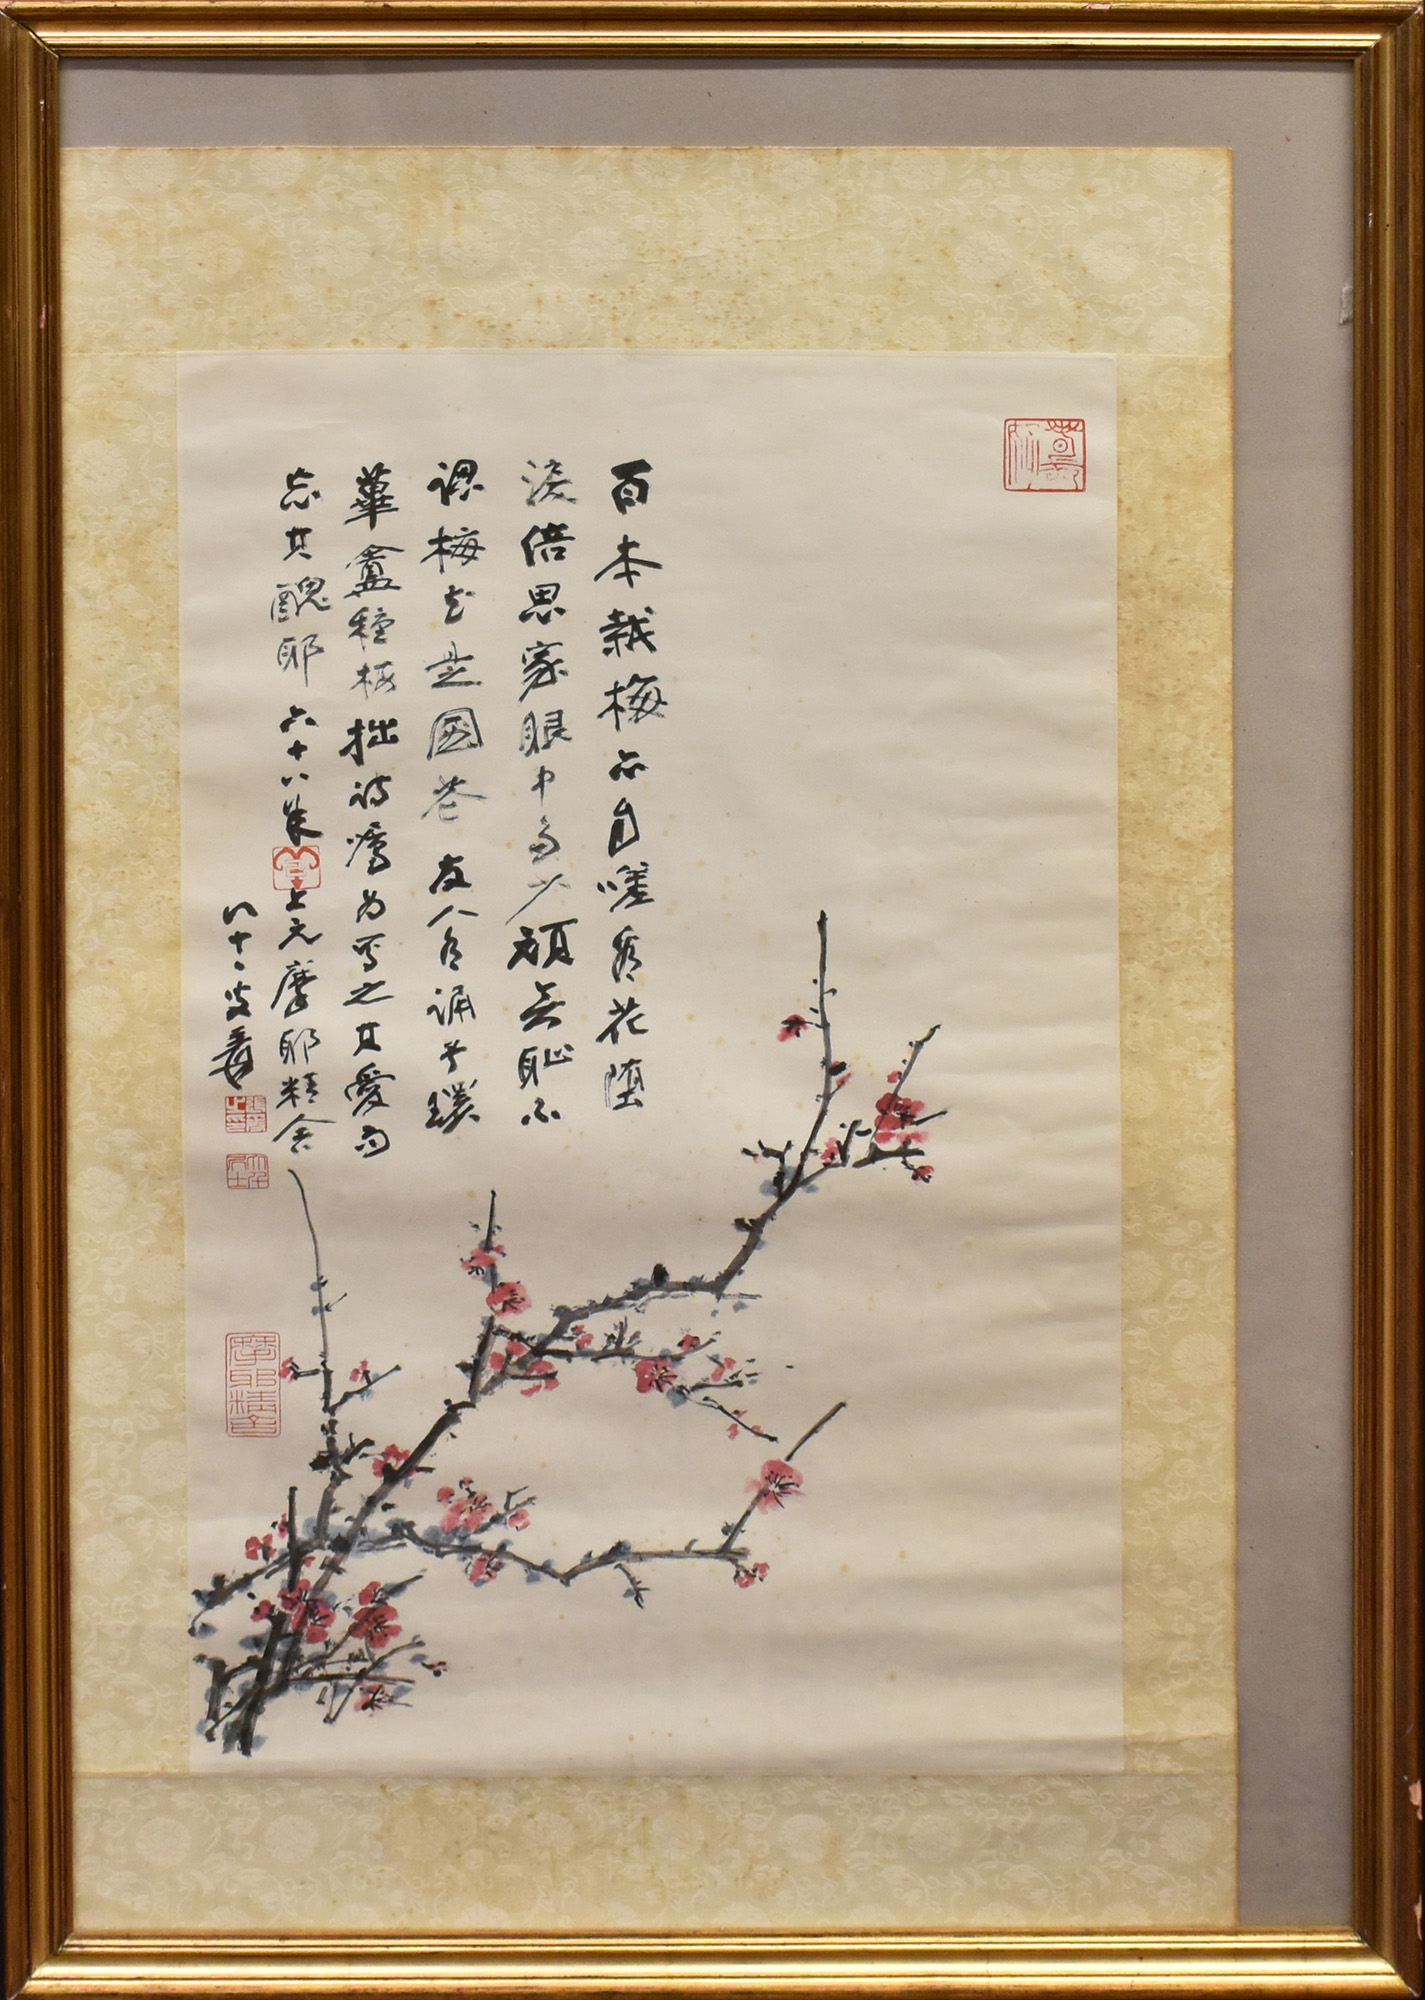 百本栽梅亦自嗟看花墮
淚倍思家眼中多少頑無恥不
認梅花是國花 友人合誦于環
蓽盦種梅拙詩囑為寫之其愛而
忘其醜耶 六十八年上元摩耶精舍
八十一叟爰
摩耶精舍